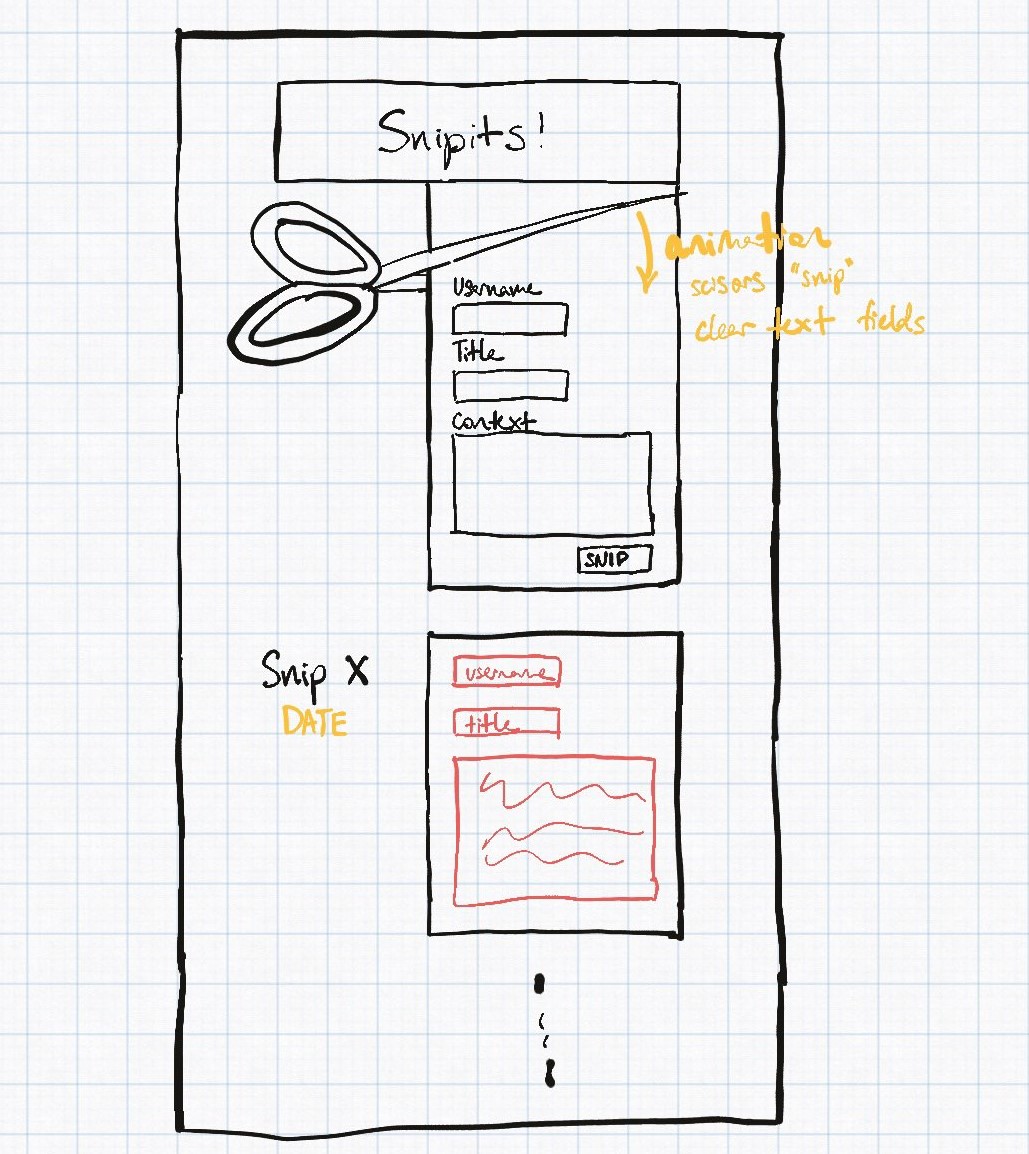 Snipits!
animation
scisors "snip"
clear text fields
Username
Title
Context
SNIP
Snip X
DATE
username
title